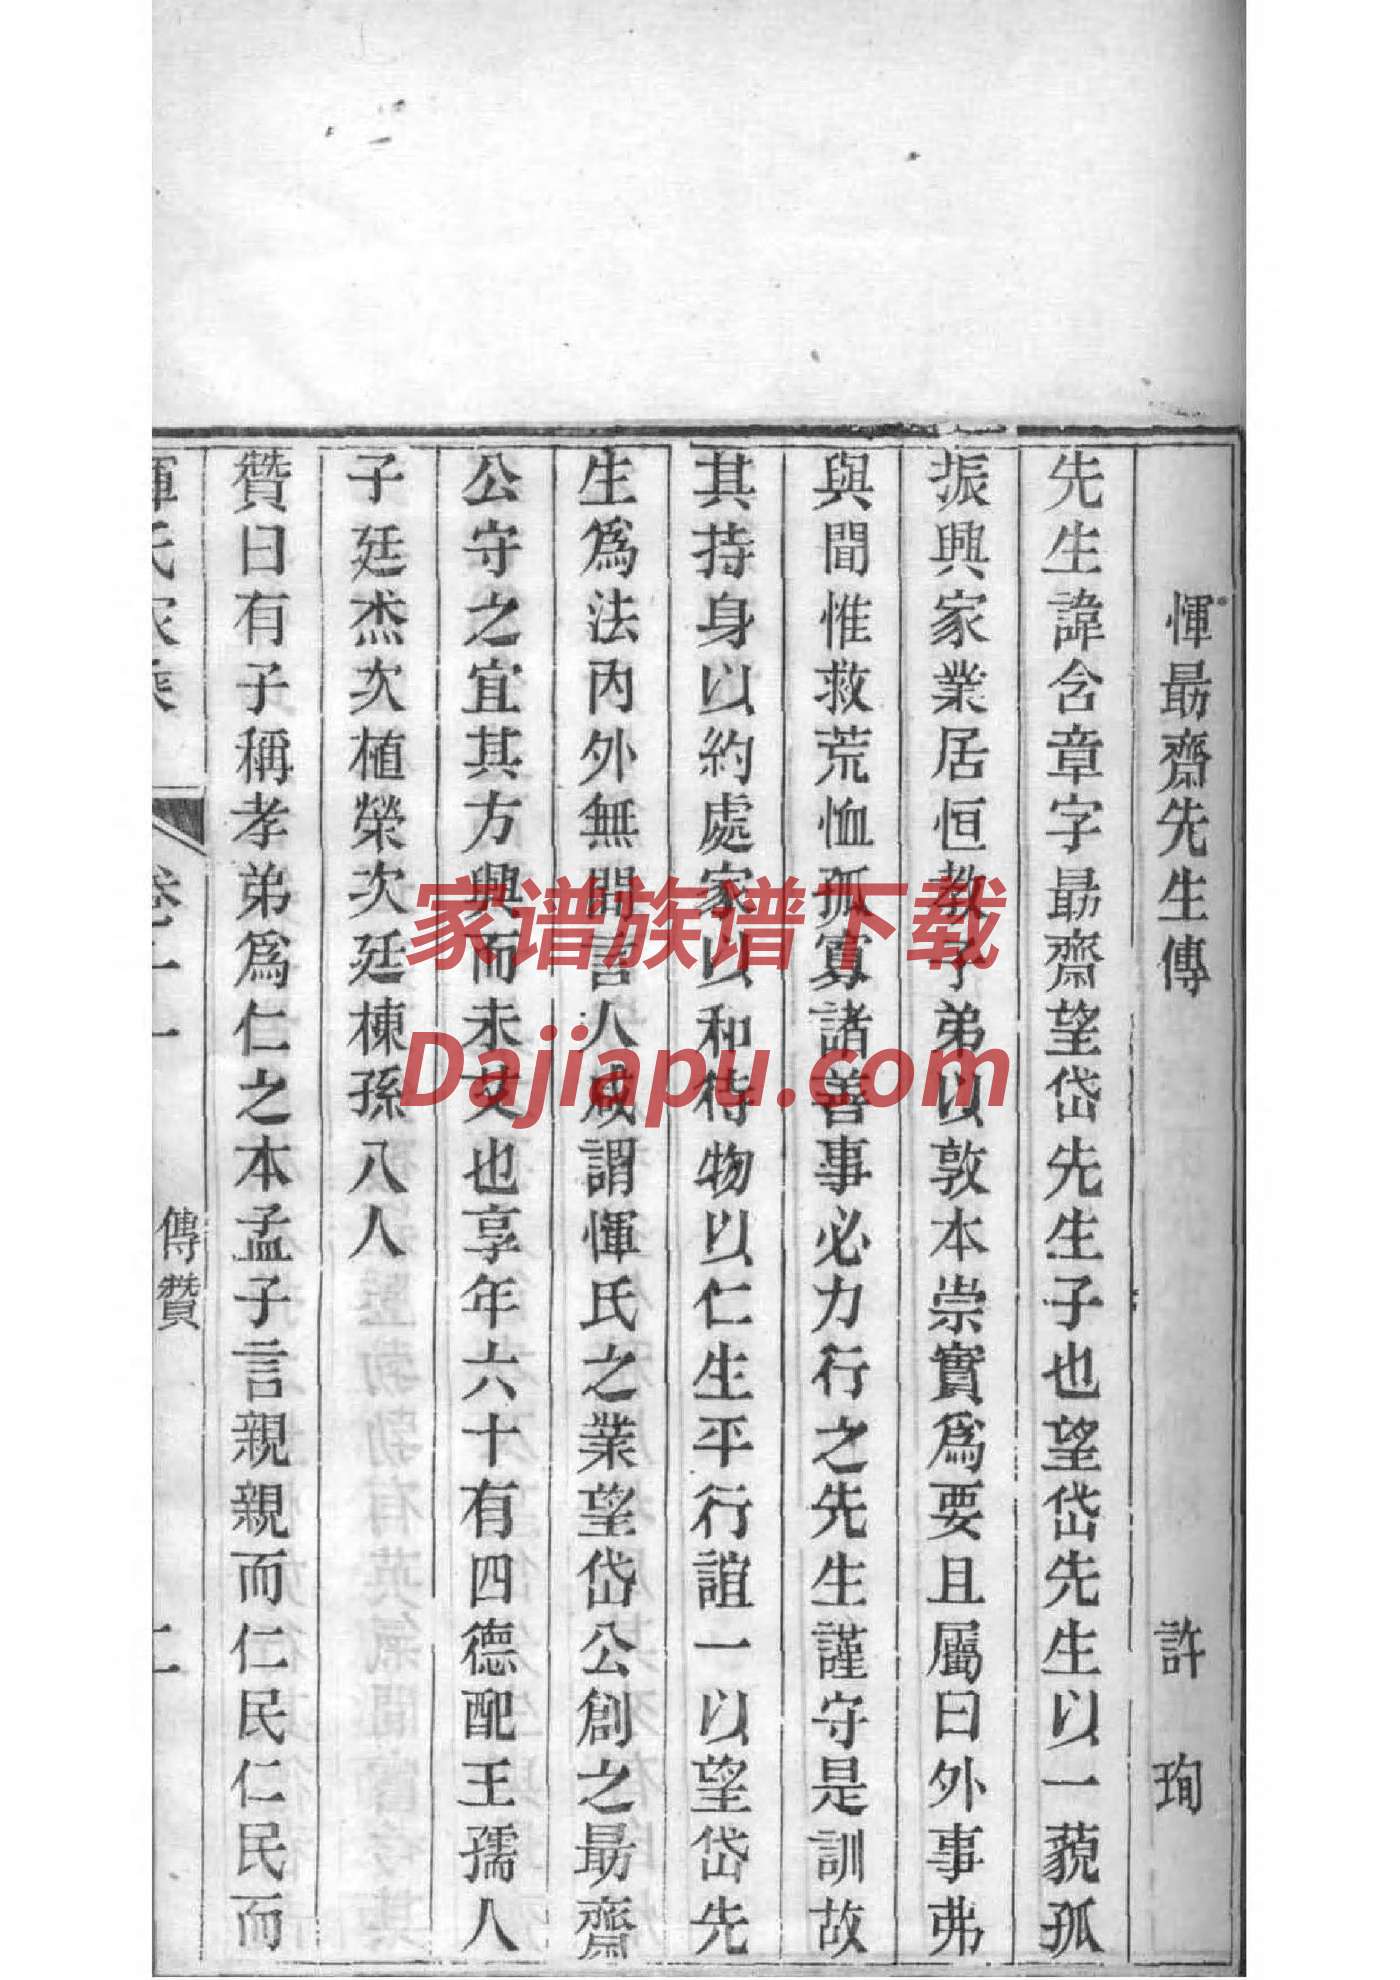 惲勗齋先生傳 許珣
先生諱含章字勗齋望岱先生子也望岱先生以一藐孤
振興家業居恒教子弟以敦本崇實爲要且屬曰外事弗
與聞惟救荒恤孤寡諸善事必力行之先生謹守是訓故
其持身以約處家以和待物以仁生平行誼一以望岱先
生爲法內外無間言人咸謂惲氏之業望岱公創之勗齋
公守之宜其方興而未艾也享年六十有四德配王孺人
子廷杰次植榮次廷棟孫八人
贊曰有子稱孝弟爲仁之本孟子言親親而仁民仁民而
惲氏家乘 傳贊
家谱族谱下载
Dajiapu.com